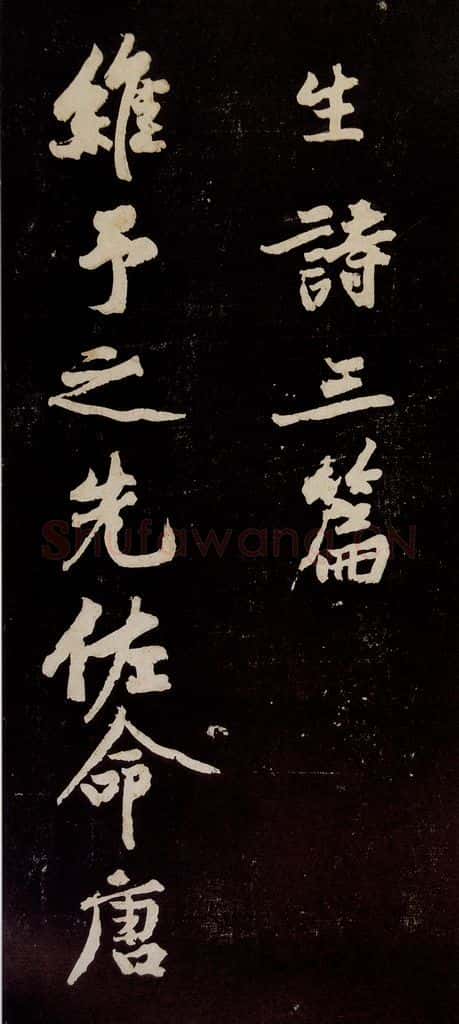 生詩三篇
維予之先佐命唐
Shufawang.CN